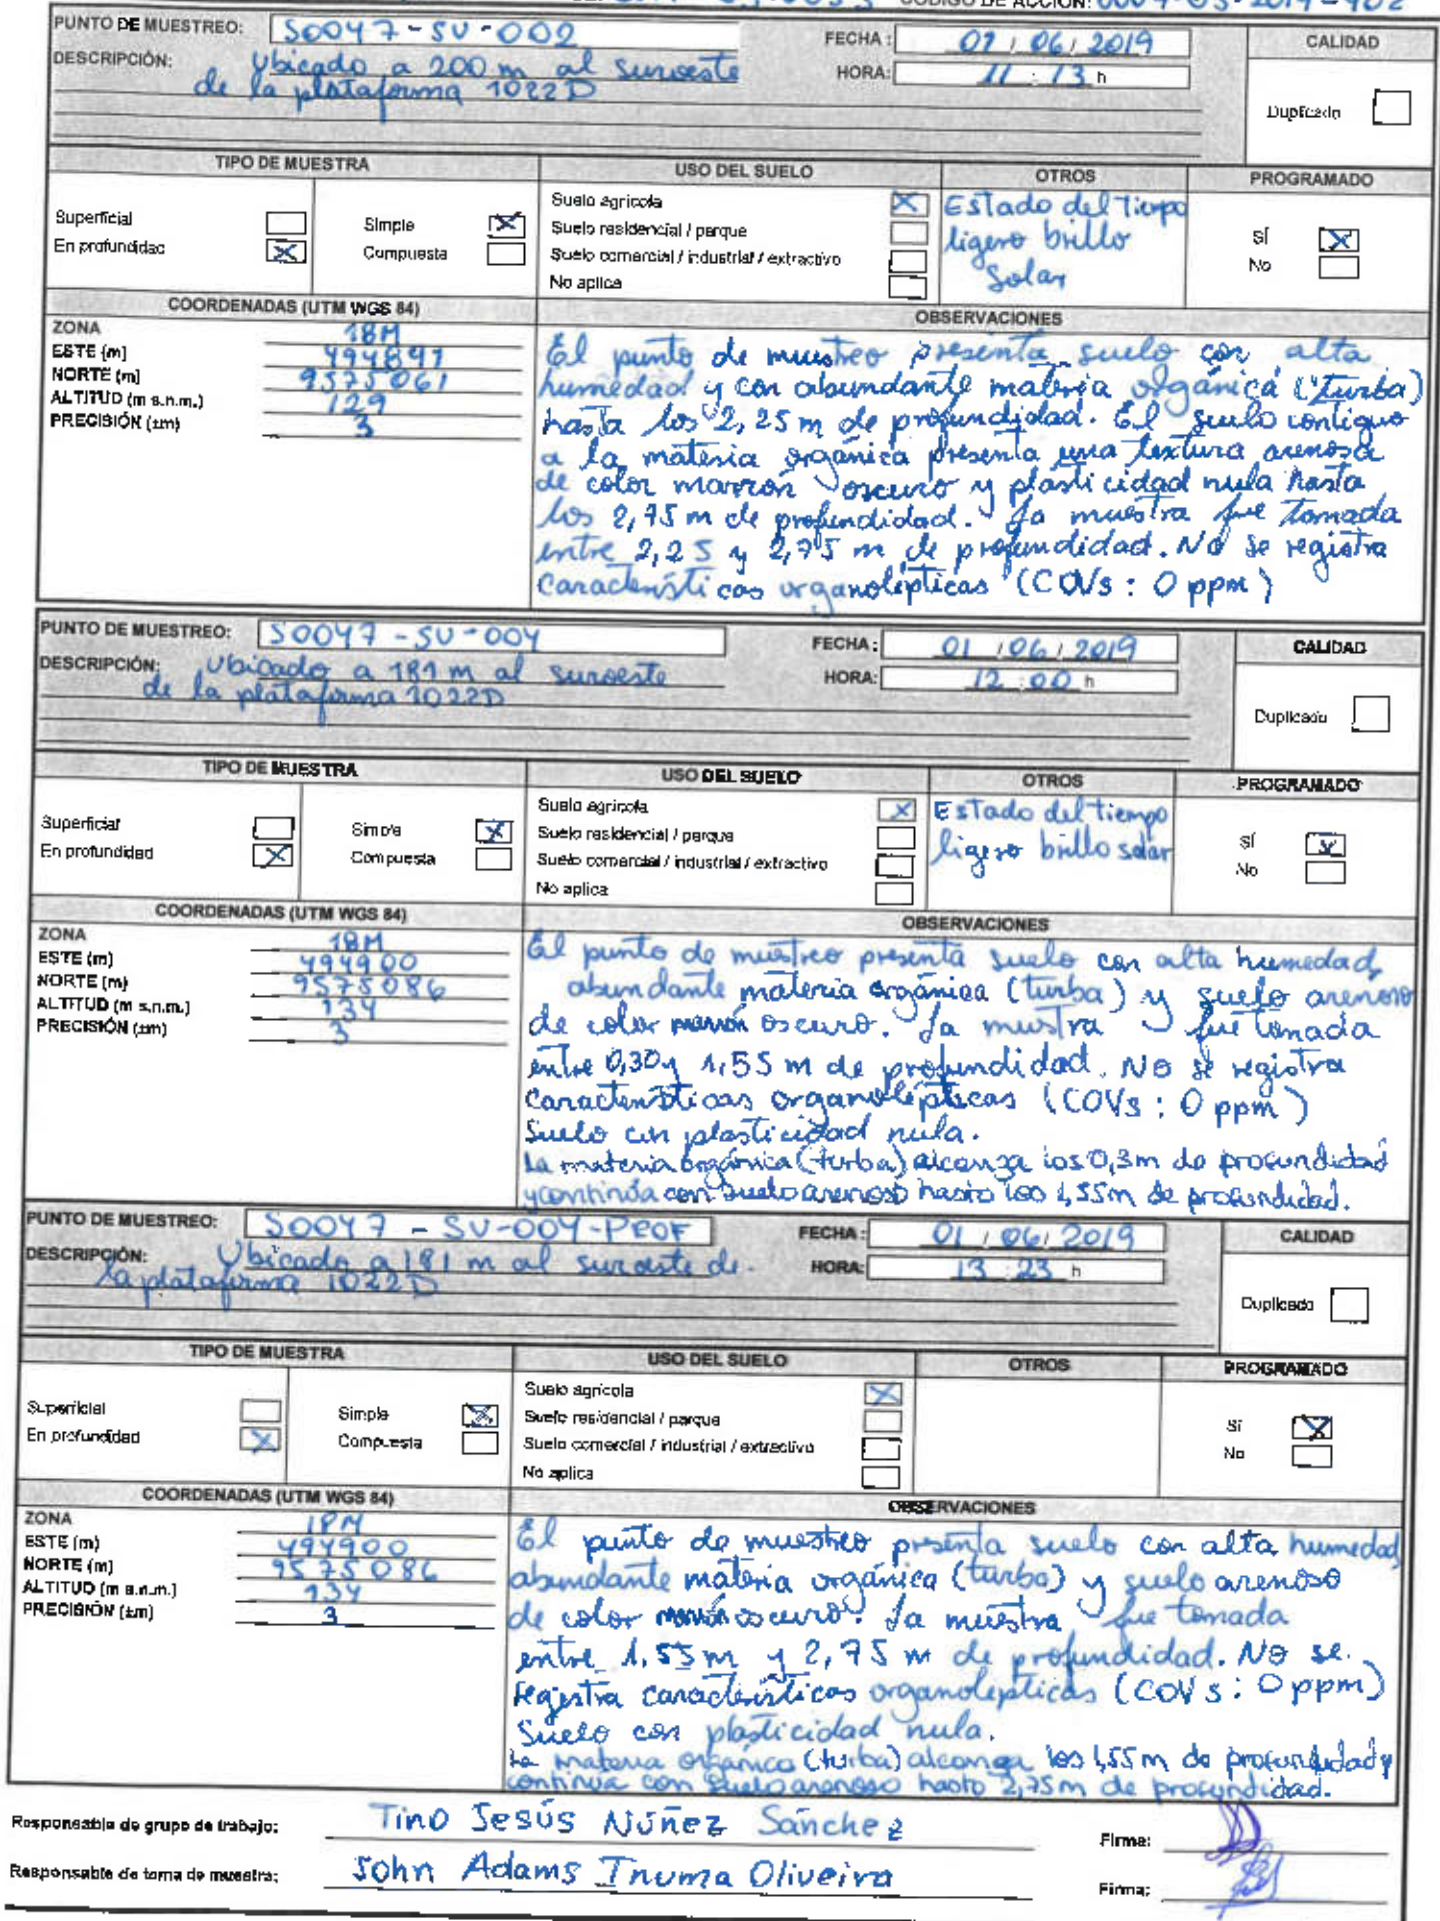 CÓDIGO DE ACCIÓN: 0004-05-2019-402
PUNTO DE MUESTREO: S0047-SU-002
FECHA: 01/06/2019
CALIDAD
DESCRIPCIÓN: Ubicado a 200 m al suroeste
HORA: 11:13 h
de la plataforma 1022D
Duplicado
TIPO DE MUESTRA
USO DEL SUELO
OTROS
PROGRAMADO
Superficial
Simple X
En profundidad X
Compuesta
Suelo agrícola X
Suelo residencial / parque
Suelo comercial / industrial / extractivo
No aplica
Estado del tiempo
ligero brillo
Solar
SÍ X
No
COORDENADAS (UTM WGS 84)
OBSERVACIONES
ZONA 18M
ESTE (m) 494891
NORTE (m) 9575061
ALTITUD (m s.n.m.) 129
PRECISIÓN (±m) 3
El punto de muestreo presenta suelo con alta
humedad y con abundante materia orgánica (turba)
hasta los 2,25 m de profundidad. El suelo contiguo
a la materia orgánica presenta una textura arenosa
de color marrón oscuro y plasticidad nula hasta
los 2,75 m de profundidad. La muestra fue tomada
entre 2,25 y 2,75 m de profundidad. No se registra
características organolépticas (COVs: 0 ppm)
PUNTO DE MUESTREO: S0047-SU-004
FECHA: 01/06/2019
CALIDAD
DESCRIPCIÓN: Ubicado a 181 m al suroeste
HORA: 12:00 h
de la plataforma 1022D
Duplicado
TIPO DE MUESTRA
USO DEL SUELO
OTROS
PROGRAMADO
Superficial
Simple X
En profundidad X
Compuesta
Suelo agrícola X
Suelo residencial / parque
Suelo comercial / industrial / extractivo
No aplica
Estado del tiempo
ligero brillo solar
SÍ X
No
COORDENADAS (UTM WGS 84)
OBSERVACIONES
ZONA 18M
ESTE (m) 494900
NORTE (m) 9575086
ALTITUD (m s.n.m.) 134
PRECISIÓN (±m) 3
El punto de muestreo presenta suelo con alta humedad,
abundante materia orgánica (turba) y suelo arenoso
de color marrón oscuro. La muestra fue tomada
entre 0,30 y 1,55 m de profundidad. No se registra
características organolépticas (COVs: 0 ppm)
Suelo con plasticidad nula.
La materia orgánica (turba) alcanza los 0,3m de profundidad
y continúa con suelo arenoso hasta los 1,55m de profundidad.
PUNTO DE MUESTREO: S0047-SU-004-PROF
FECHA: 01/06/2019
CALIDAD
DESCRIPCIÓN: Ubicado a 181 m al suroeste de
HORA: 13:23 h
la plataforma 1022D
Duplicado
TIPO DE MUESTRA
USO DEL SUELO
OTROS
PROGRAMADO
Superficial
Simple X
En profundidad X
Compuesta
Suelo agrícola X
Suelo residencial / parque
Suelo comercial / industrial / extractivo
No aplica
SÍ X
No
COORDENADAS (UTM WGS 84)
OBSERVACIONES
ZONA 18M
ESTE (m) 494900
NORTE (m) 9575086
ALTITUD (m s.n.m.) 134
PRECISIÓN (±m) 3
El punto de muestreo presenta suelo con alta humedad,
abundante materia orgánica (turba) y suelo arenoso
de color marrón oscuro. La muestra fue tomada
entre 1,55 m y 2,75 m de profundidad. No se
registra características organolépticas (COVs: 0 ppm)
Suelo con plasticidad nula.
La materia orgánica (turba) alcanza los 1,55m de profundidad y
continúa con suelo arenoso hasta 2,75m de profundidad.
Responsable de grupo de trabajo: Tino Jesús Núñez Sánchez
Firma:
Responsable de toma de muestra: John Adams Inuma Oliveira
Firma: